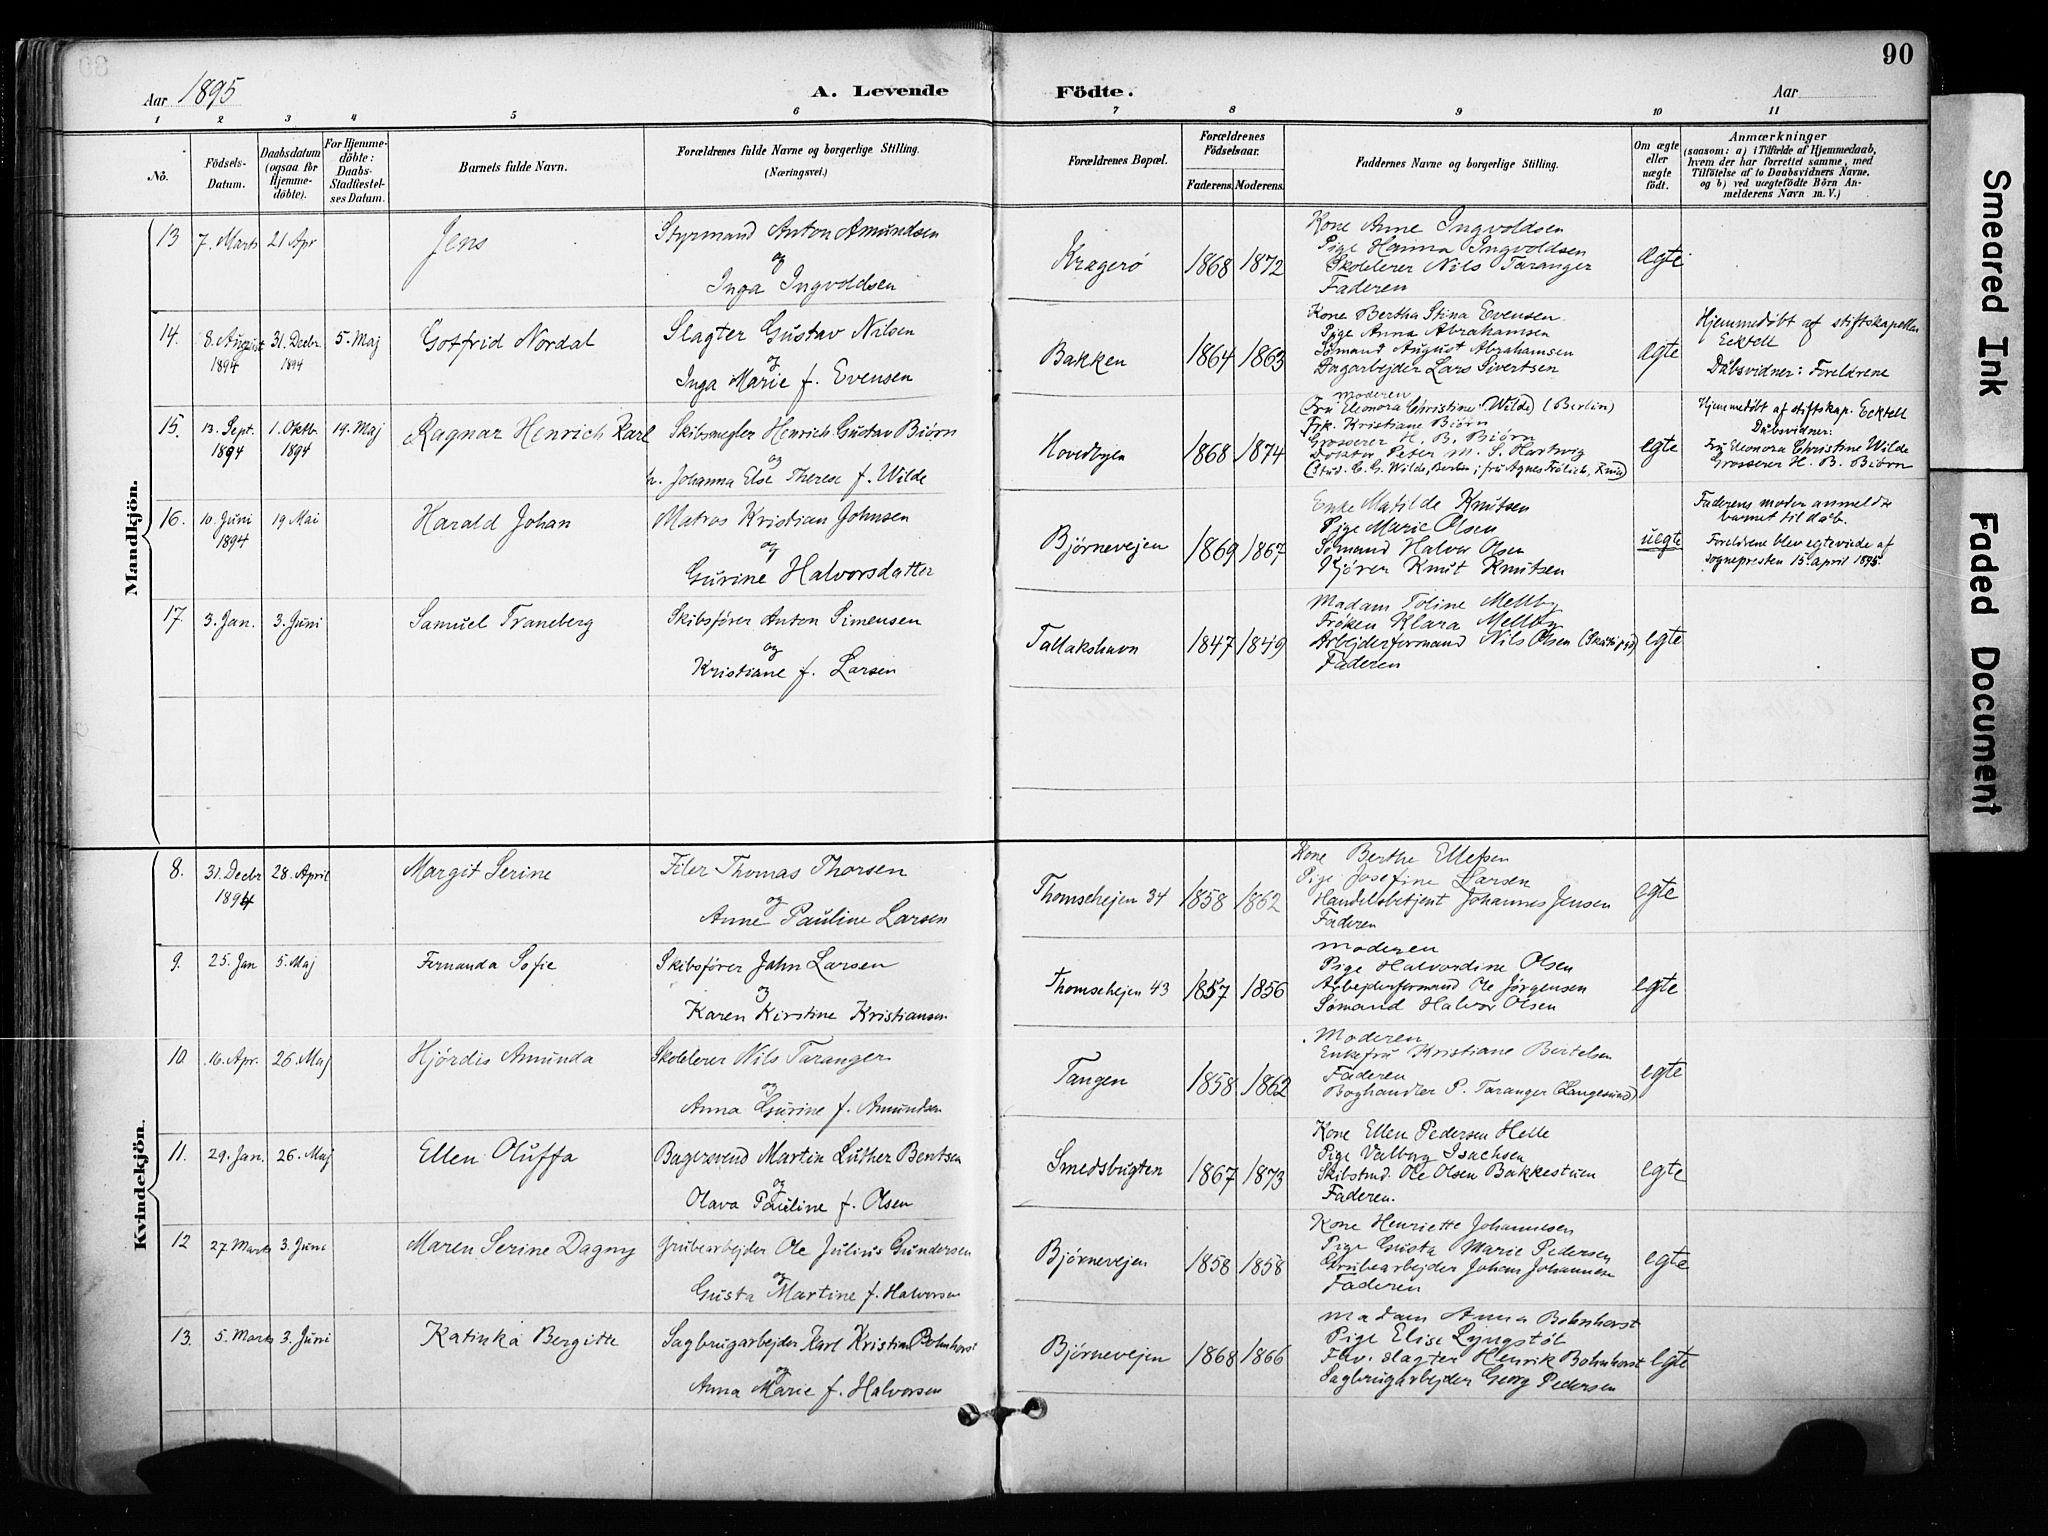 90
Aar 1895
A. Levende Födte.
Aar
1 2 3 4 5 6 7 8 9 10 11
No.
Födsels-
Datum.
Daabsdatum
(ogsaa for
Hjemme-
döbte).
For Hjemme-
döbte:
Daabs-
Stadfæstel-
ses Datum.
Barnets fulde Navn.
Forældrenes fulde Navne og borgerlige Stilling.
(Næringsvei.)
Forældrenes Bopæl.
Forældrenes
Födselsaar.
Faderens. Moderens.
Faddernes Navne og borgerlige Stilling.
Om ægte
eller
uægte
födt.
Anmærkninger
(saasom: a) i Tilfælde af Hjemmedaab,
hvem der har forrettet samme, med
Tilföielse af to Daabsvidners Navne.
og b) ved uægtefödte Börn An-
melderens Navn m. V.)
Mandkjön.
13 7. Marts 21 Apr
Jens
Styrmand Anton Amundsen
og
Inga Ingvoldsen
Kragerø 1868 1872
Kone Anne Ingvoldsen
Pige Hanna Ingvoldsen
Skolelerer Nils Taranger
Faderen
egte
14. 8. August 1894 31. Decbr. 1894 5. Maj
Gotfrid Nordal
Slagter Gustav Nilsen
og
Inga Marie f. Evensen
Bakken 1864 1863
Kone Bertha Stina Evensen
Pige Anna Abrahamsen
Sømand August Abrahamsen
Dagarbejder Lars Sivertsen
egte
Hjemmedøbt af stiftskapellan
Ecktell
Dåbsvidner: Foreldrene
15. 12. Sept. 1894 1. Oktb. 1894 19. Maj
Ragnar Henrich Karl
Skibsmegler Henrich Gustav Biørn
og
h. Johanna Else Therese f. Wilde
Hovedbyen 1868 1874
Moderen
(Fru Eleonora Christine Wilde) (Berlin)
Frk. Kristiane Biørn
Grosserer H. B. Biørn
Doktor Peter M. S. Hartvig
(Stud. C. G. Wilde, Berlin; fru Agnes Frølich,
egte
Hjemmedøbt af stiftskap. Ecktell
Dåbsvidner:
Fru Eleonora Christine Wilde
Grosserer H. B. Biørn
16. 10. Juni 1894 19 Mai
Harald Johan
Matros Kristian Johnsen
og
Gurine Halvorsdatter
Bjørnevejen 1869 1867
Enke Matilde Knutsen
Pige Marie Olsen
Sømand Halvor Olsen
Kjører Knut Knutsen
uegte
Faderens moder anmeldte
barnet til dåb.
Foreldrene blev egteviede af
sognepresten 15. april 1895.
17. 3. Jan. 3. Juni
Samuel Traneberg
Skibsfører Anton Simensen
og
Kristiane f. Larsen
Tallakshavn 1847 1849
Madam Toline Mellby
Frøken Klara Mellby
Arbejdsformand Nils Olsen
Faderen
egte
Kvindekjön.
8. 31. Decbr 1894 28. April
Margit Serine
Filer Thomas Thorsen
og
Anne Pauline Larsen
Thomsehejen 34 1858 1862
Kone Berthe Ellefsen
Pige Josefine Larsen
Handelsbetjent Johannes Jensen
Faderen
egte
9. 25. Jan 5. Maj
Fernanda Sofie
Skibsfører John Larsen
og
Karen Kirstine Kristiansen
Thomsehejen 43 1857 1856
Moderen
Pige Halvordine Olsen
Arbejdsformand Ole Jørgensen
Sømand Halvor Olsen
egte
10 16. Apr. 26. Maj
Hjørdis Amunda
Skolelerer Nils Taranger
og
Anna Gurine f. Amundsen
Tangen 1858 1862
Moderen
Enkefru Kristiane Bertelsen
Faderen
Boghandler P. Taranger (Langesund)
egte
11. 29. Jan. 26. Maj
Ellen Oluffa
Bagersvend Martin Luther Bentsen
og
Olava Pauline f. Olsen
Smedsbugten 1867 1873
Kone Ellen Pedersen Helle
Pige Valborg Isachsen
Skibstmd. Ole Olsen Bakkestuen
Faderen.
egte
12 27. Marts 3. Juni
Maren Serine Dagny
Grubearbejder Ole Julius Gundersen
og
Gusta Martine f. Halvorsen
Bjørnevejen 1858 1858
Kone Henriette Johannesen
Pige Gusta Marie Pedersen
Grubearbejder Johan Johannesen
Faderen
egte
13. 5. Marts 3. Juni
Katinka Bergitte
Sagbrugarbejder Karl Kristian Bohnhorst
og
Anna Marie f. Halvorsen
Bjørnevejen 1868 1866
Madam Anna Bohnhorst
Pige Elise Lyngstøl
Fhv. slagter Henrik Bohnhorst
Sagbrugarbejder Georg Pedersen
egte
Smeared Ink
Faded Document